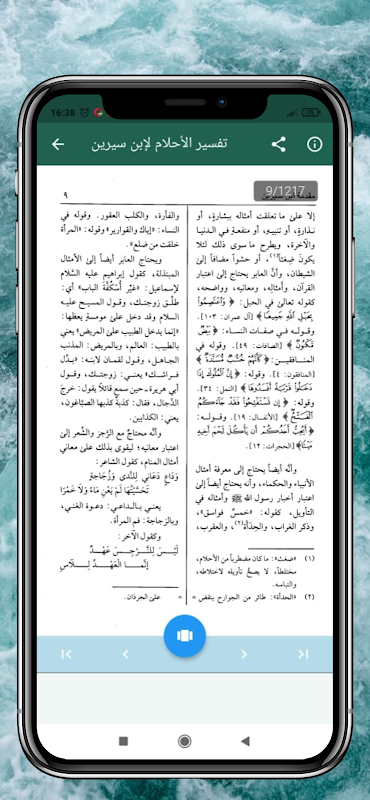 16:38
75
تفسير الأحلام لإبن سيرين
9/1217
مقدمة ابن سيرين
٩
إلا على ما تعلقت أمثاله ببشارةٍ، أو
نذارةٍ، أو تنبيهٍ، أو منفعةٍ في الدنيا
والآخرة، ويطرح ما سوى ذلك لئلا
يكون ضِغثاً(١)، أو حشواً مضافاً إلى
الشيطان، وأنَّ العابر يحتاج إلى اعتبار
القرآن، وأمثاله، ومعانيه، وواضحه،
كقوله تعالى في الحبل: ﴿ وَاعْتَصِمُوا
بِحَبْلِ اللَّهِ جَمِيعًا ﴾ [آل عمران: ١٠٣].
وقوله في صفات النساء: ﴿ بَيْضٌ
مَّكْنُونٌ ﴾ [الصافات: ٤٩]. وقوله في
المنافقين: ﴿ كَأَنَّهُمْ خُشُبٌ مُّسَنَّدَةٌ ﴾
[المنافقون: ٤]. وقوله: ﴿ إِنَّ الْمُلُوكَ إِذَا
دَخَلُوا قَرْيَةً أَفْسَدُوهَا ﴾ [النمل: ٣٤].
وقوله: ﴿ إِن تَسْتَفْتِحُوا فَقَدْ جَاءَكُمُ
الْفَتْحُ ﴾ [الأنفال: ١٩]. وقوله:
﴿ أَيُحِبُّ أَحَدُكُمْ أَن يَأْكُلَ لَحْمَ أَخِيهِ
مَيْتًا ﴾ [الحجرات: ١٢].
وأنَّه أيضاً يحتاج إلى معرفة أمثال
الأنبياء والحكماء، وأنه يحتاج أيضاً إلى
اعتبار أخبار رسول الله ﷺ وأمثاله في
التأويل، كقوله: «خمسٌ فواسق»،
وذكر الغراب، والحِدَأة(٢)، والعقرب،
(١) «ضغث»: ما كان مضطرباً من الأحلام،
مختلطاً، لا يصحُّ تأويله لاختلاطه،
والتباسه.
(٢) «الحدأة»: طائر من الجوارح ينقض =
والفأرة، والكلب العقور. وقوله في
النساء: «إياك والقوارير» وقوله: «المرأة
خلقت من ضلع».
ويحتاج العابر أيضاً إلى الأمثال
المبتذلة، كقول إبراهيم عليه السَّلام
لإسماعيل: «غَيِّر أُسْكُفَّةَ الباب» أي:
طلِّق زوجتك، وقول المسيح عليه
السلام وقد دخل على مومسٍ يعظها:
«إنما يدخل الطبيب على المريض» يعني
بالطبيب: العالم، وبالمريض: المذنب
الجاهل، وقول لقمان لابنه: «بدِّل
فراشك» يعني: زوجتك، وقول
أبي هريرة ـ حين سمع قائلاً يقول: خرج
الدَّجال، فقال: كذبةٌ كذبها الصبَّاغون،
يعني: الكذابين.
وأنَّه محتاجٌ مع الرَّجز والشِّعر إلى
اعتبار معانيه؛ ليقوى بذلك على معاني
أمثال المنام، كقول الشاعر:
وَدَاعٍ دَعَاني لِلنَّدى وَزُجَاجَةٍ
تَحَسَّيْتُهَا لَمْ يَعْنِ مَاءً وَلَا خَمْرَا
يعني بالداعي: دعوة الغني،
وبالزجاجة: فم المرأة.
وكقول الآخر:
لَيْسَ لِلنَّرْجِسِ عَهْدٌ
إِنَّمَا الْعَهْدُ لِلْآسِ
= على الجرذان.